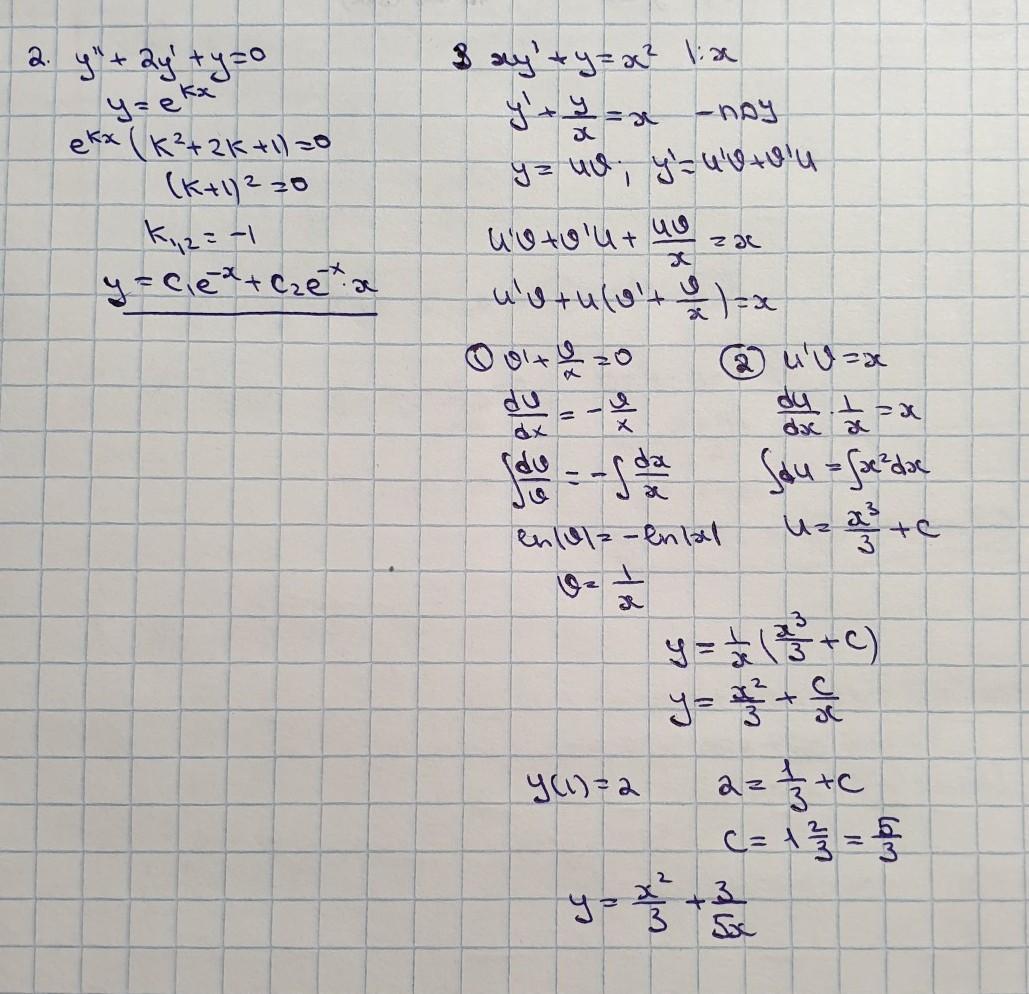 2. y'' + 2y' + y = 0
y = e^{kx}
e^{kx}(k² + 2k + 1) = 0
(k+1)² = 0
k₁,₂ = -1
y = C₁e^{-x} + C₂e^{-x}·x
3 xy' + y = x² |:x
y' + y/x = x - ЛДУ
y = uv; y' = u'v + v'u
u'v + v'u + uv/x = x
u'v + u(v' + v/x) = x
① v' + v/x = 0
dv/dx = -v/x
∫dv/v = -∫dx/x
ln|v| = -ln|x|
v = 1/x
② u'v = x
du/dx · 1/x = x
∫du = ∫x²dx
u = x³/3 + C
y = 1/x (x³/3 + C)
y = x²/3 + C/x
y(1) = 2
2 = 1/3 + C
C = 1 2/3 = 5/3
y = x²/3 + 3/5x